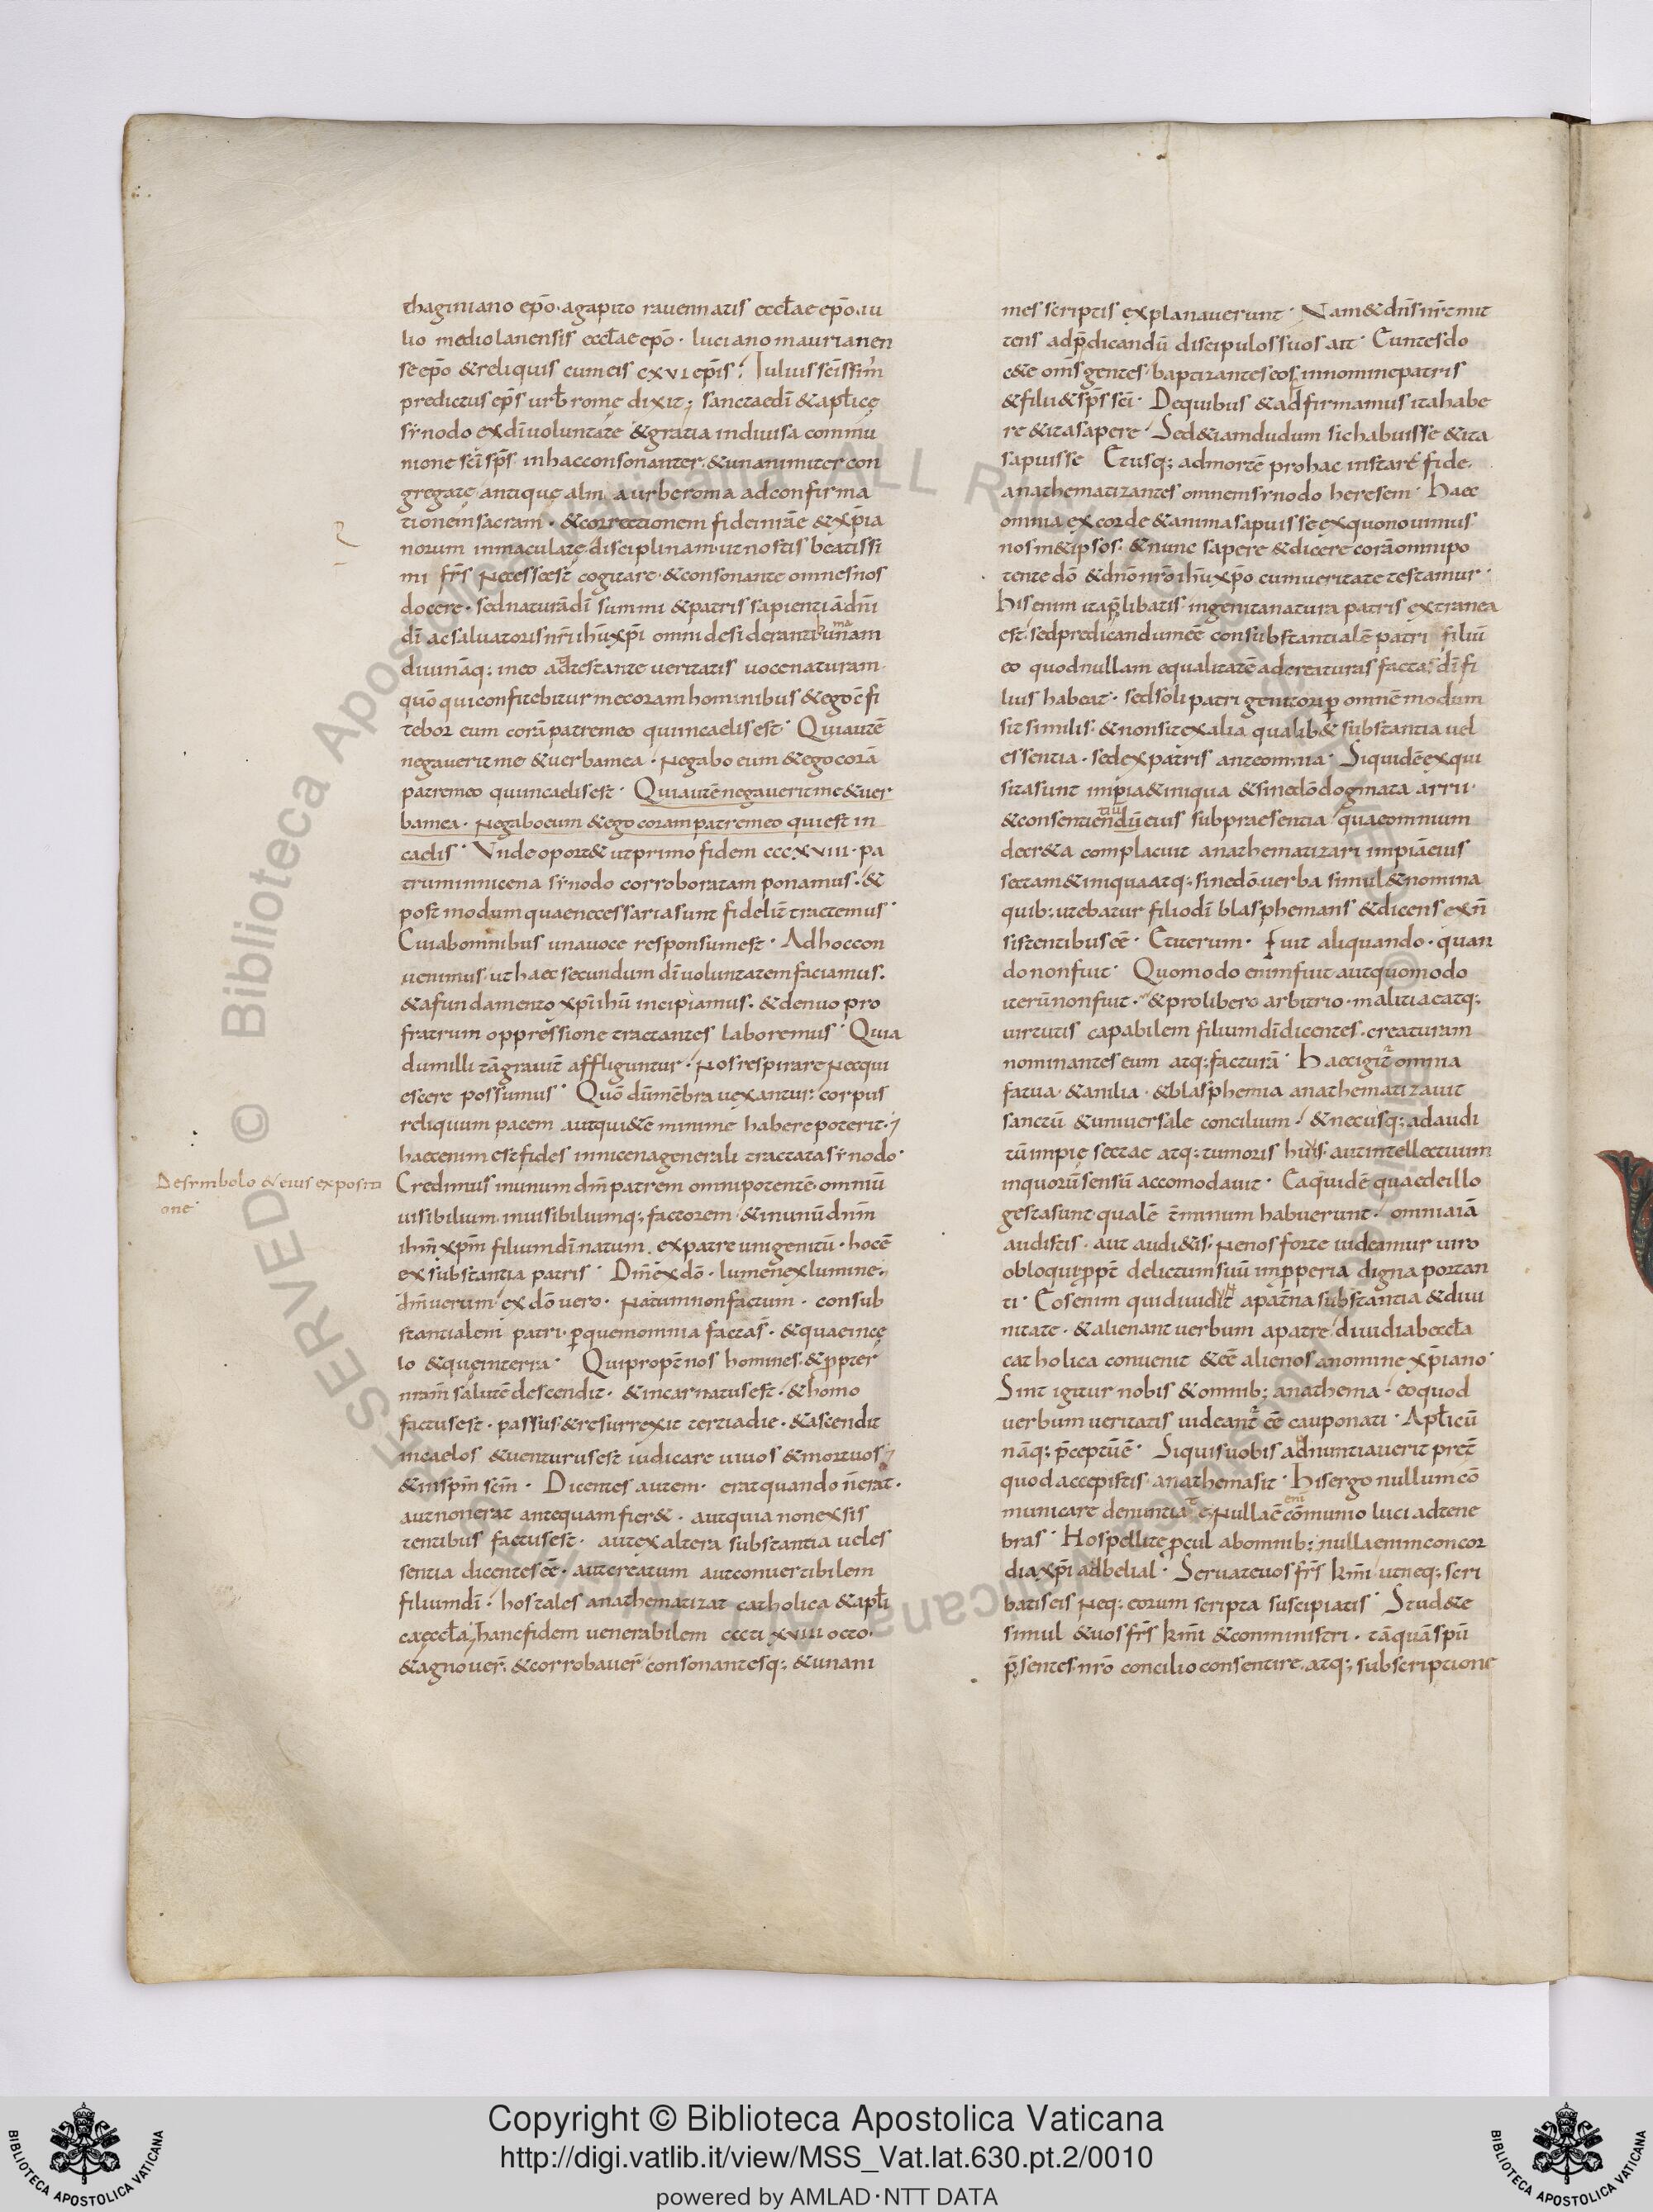 thaginiano ep̄o. agapito rauennatis eccl̄ae ep̄o. iu
lio mediolanensis eccl̄ae ep̄o · luciano maurianen
se ep̄o & reliquis cum eis cxvi ep̄is. Iulius sc̄issim̄
predictus ep̄s urb̄ romę dixit; sanctae dī & apl̄icę
synodo ex dī uoluntate & gratia indiuisa commu
nione sc̄i sp̄s inhac consonanter. & unanimiter con
gregatę antiquę alm a urbe roma ad confirma
tionem sacram · & correctionem fidei nr̄ae & xp̄ia
norum inmaculatę disciplinam. ut nostis beatissi
mi fr̄s Necesse est cogitare · & consonante omnes nos
docere · sed naturā dī summi & patris sapientiā dn̄i
dī ac saluatoris nr̄i ihū xp̄i omni desideranti unam
diuināq: meo adtestante ueritatis uoce naturam ·
quō qui confitebitur me coram hominibus & ego c̄fi
tebor eum corā patre meo qui in caelis est · Qui autē
negauerit me & uerba mea · Negabo eum & ego corā
patre meo qui in caelis est · Qui autē negauerit me & uer
ba mea · Negabo eum & ego coram patre meo qui est in
caelis · Vnde oport& ut primo fidem cccxviii · pa
trum in nicena synodo corroboratam ponamus. &
post modum quae necessaria sunt fidelit̄ tractemus ·
Cui ab omnibus una uoce responsum est · Ad hoc con
uenimus. ut haec secundum dī uoluntatem faciamus.
& a fundamento xp̄i ihū incipiamus. & denuo pro
fratrum oppressione tractantes laboremus · Quia
dum illi tā grauit̄ affliguntur · Nos respirare Nec qui
escere possumus · Quō dū mēbra uexantur: corpus
reliquum pacem aut quiētē minime habere poterit.;
haec enim est fides in nicena generali tractata synodo ·
De symbolo & eius expositi
one
Credimus in unum dm̄ patrem omnipotentē. omniū
uisibilium. inuisibiliumq: factorem & in unū dn̄m
ihm̄ xp̄m filium dī natum. ex patre unigenitū · hoc ē
ex substantia patris · Dm̄ ex dō · lumen ex lumine.
dm̄ uerum ex dō uero · Natum non factum · consub
stantialem patri · p̱ quem omnia facta s̄ · & quae in cę
lo & quę in terra · Qui propt̄ nos homines. & ppter
nram̄ salutē descendit · & incarnatus est · & homo
factus est · passus & resurrexit tertia die · & ascendit
in caelos & uenturus est iudicare uiuos & mortuos;
& in sp̄m sc̄m · Dicentes autem · erat quando n̄ erat ·
aut non erat antequam fier& · aut quia non exsis
tentibus factus est · aut ex altera substantia uel es
sentia dicentes eē · aut creatum aut conuertibilem
filium dī · hos tales anathematizat catholica & apl̄i
ca eccl̄a; hanc fidem uenerabilem cccti xviii octo ·
& agnouer̄. & corrobauer̄ consonantesq: & unani
mes scriptis explanauerunt · Nam & dn̄s nr̄ mit
tens ad p̄dicandū discipulos suos ait · Euntes do
cete om̄s gentes baptizantes eos in nomine patris
& filii & sp̄s sc̄i · De quibus & adfirmamus ita habe
re & ita sapere · Sed & iamdudum sic habuisse & ita
sapuisse Et usq: ad mortē pro hac instare fide.
anathematizantes omnem synodo heresem · Haec
omnia ex corde & anima sapuisse ex quo nouimus
nosm&ipsos. & nunc sapere & dicere corā omnipo
tente dō & dnō nrō ihū xp̄o cum ueritate testamur ·
His enim ita p̄libatis ingenita natura patris extranea
est. sed predicandum eē consubstantialē patri filiū
eo quod nullam equalitatē ad creaturas factas dī fi
lius habeat · sed soli patri genitori p̱ omnē modum
sit similis. & non sit ex alia qualib& substantia uel
essentia · sed ex patris ante omnia · Siquidē exqui
sita sunt impia & iniqua & sinedō dogmata arrii ·
& consentiendū eius sub praesentia quae omnium
decr&a complacuit anathematizari impiā eius
sectam & iniqua atq: sinedō uerba simul & nomina
quib: utebatur filio dī blasphemans & dicens ex n̄
sistentibus eē · Et iterum · Fuit aliquando · quan
do non fuit · Quomodo enim fuit aut quomodo
iterū non fuit · & pro libero arbitrio · malitiae atq:
uirtutis capabilem filium dī dicentes. creaturam
nominantes eum atq: facturā · Haec igit̄ omnia
fatua · & anilia · & blasphemia anathematizauit
sanctū & uniuersale concilium. & nec usq: ad audi
tū impię sectae atq: tumoris hui's. aut intellectuum
in quorū sensū accomodauit · Ea quidē quae de illo
gesta sunt qualē t̄minum habuerunt · omnia iā
audistis · aut audi&is. Ne nos forte uideamur uiro
obloqui ppt̄ delictum suū improperia digna portan
ti · Eos enim qui diuidit a pat̄na substantia & diui
nitate · & alienant uerbum a patre diuidi ab eccl̄a
catholica conuenit & eē alienos a nomine xp̄iano ·
Sint igitur nobis & omnib: anathema · eo quod
uerbum ueritatis uideant̄ eē cauponati · Apl̄icū
nāq: p̄ceptū ē · Si quis uobis adnuntiauerit pret̄
quod accepistis anathema sit · His ergo nullum cō
municare denuntiate. Nulla ē cōmunio luci ad tene
bras · Hos pellite p̱cul ab omnib: nulla enim concor
dia xp̄i ad belial · Seruate uos fr̄s km̄i ut neq: scri
batis eis Neq: eorum scripta suscipiatis · Stud&e
simul & uos fr̄s km̄i & conministri · tāquā spū
p̄sentes nrō concilio consentire. atq: subscriptione
Copyright © Biblioteca Apostolica Vaticana
http://digi.vatlib.it/view/MSS_Vat.lat.630.pt.2/0010
powered by AMLAD·NTT DATA
BIBLIOTECA APOSTOLICA VATICANA
BIBLIOTECA APOSTOLICA VATICANA